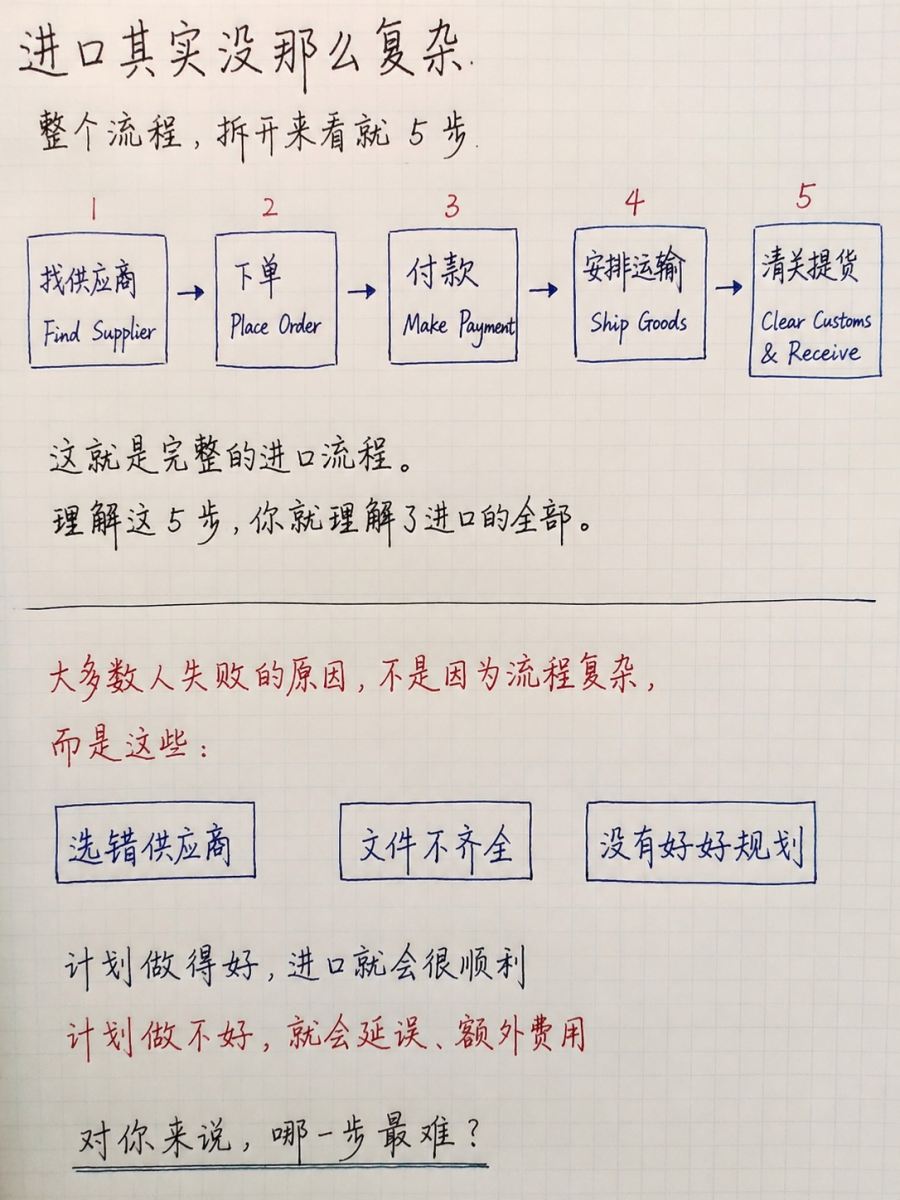 进口其实没那么复杂.
整个流程,拆开来看就 5 步.
1 2 3 4 5
找供应商 → 下单 → 付款 → 安排运输 → 清关提货
Find Supplier Place Order Make Payment Ship Goods Clear Customs
& Receive
这就是完整的进口流程。
理解这 5 步,你就理解了进口的全部。
大多数人失败的原因,不是因为流程复杂,
而是这些:
选错供应商 文件不齐全 没有好好规划
计划做得好,进口就会很顺利
计划做不好,就会延误、额外费用
对你来说,哪一步最难?